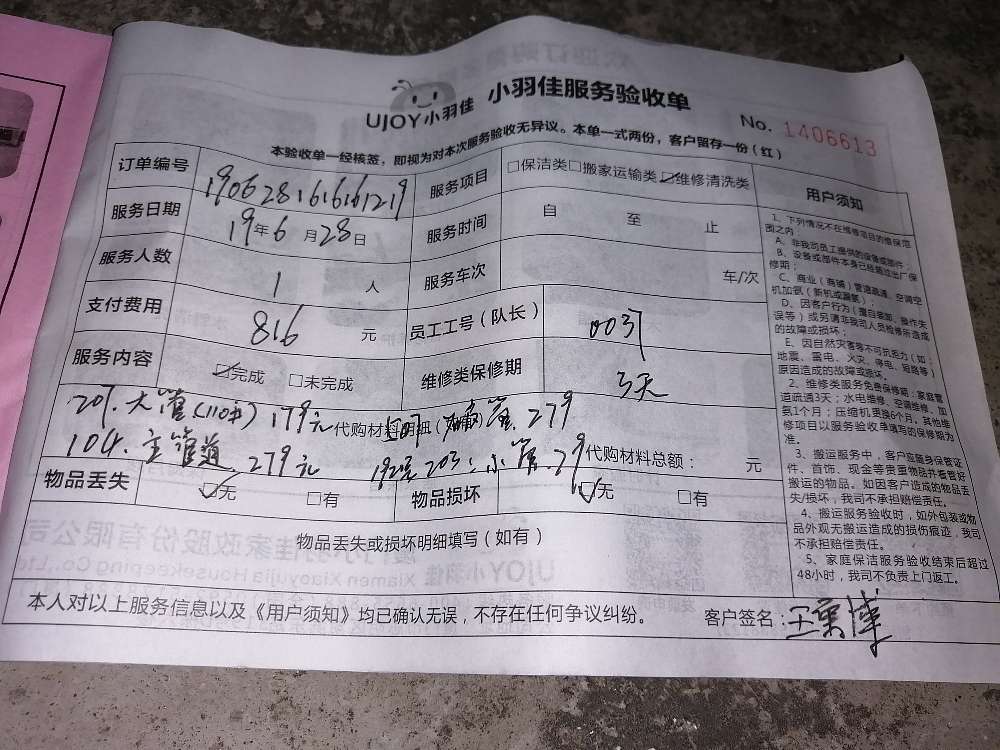 UJOY小羽佳 小羽佳服务验收单
No. 1406613
本验收单一经核签，即视为对本次服务验收无异议。本单一式两份，客户留存一份（红）
订单编号 190628161661219 服务项目 □保洁类□搬家运输类☑维修清洗类
服务日期 19年6月28日 服务时间 自 至 止
服务人数 1 人 服务车次 车/次
支付费用 816 元 员工工号（队长） 0037
服务内容 ☑完成 □未完成 维修类保修期 3天
207.大管(110#)179元 代购材料明细 管.279
104.主管道.279元 203:小管.79 代购材料总额： 元
物品丢失 ☑无 □有 物品损坏 ☑无 □有
物品丢失或损坏明细填写（如有）
本人对以上服务信息以及《用户须知》均已确认无误，不存在任何争议纠纷。 客户签名：
用户须知
1、下列情况不在维修项目的维保范
围之内：
A、非我司员工提供的设备或部件；
B、设备或部件本身已经超过出厂保
修期；
C、商业（商铺）管道疏通、空调空
机加氨（新机或漏氨）；
D、因客户行为（擅自装卸、操作失
误等）或另请非我司人员检修所造成
的故障或损坏；
E、因自然灾害等不可抗拒力（如：
地震、雷电、火灾、停电、短路等）
原因造成的故障或损坏。
2、维修类服务免费保修期：家庭管
道疏通3天；水电维修、空调维修、加
氨1个月；压缩机更换6个月。其他维
修项目以服务验收单填写的保修期为
准。
3、搬运服务中，客户应随身保管证
件、首饰、现金等贵重物品并看管好
搬运的物品。如因客户造成的物品丢
失/损坏，我司不承担赔偿责任。
4、搬运服务验收时，如外包装或物
品外观无搬运造成的损伤痕迹，我司
不承担赔偿责任。
5、家庭保洁服务验收结束后超过
48小时，我司不负责上门返工。